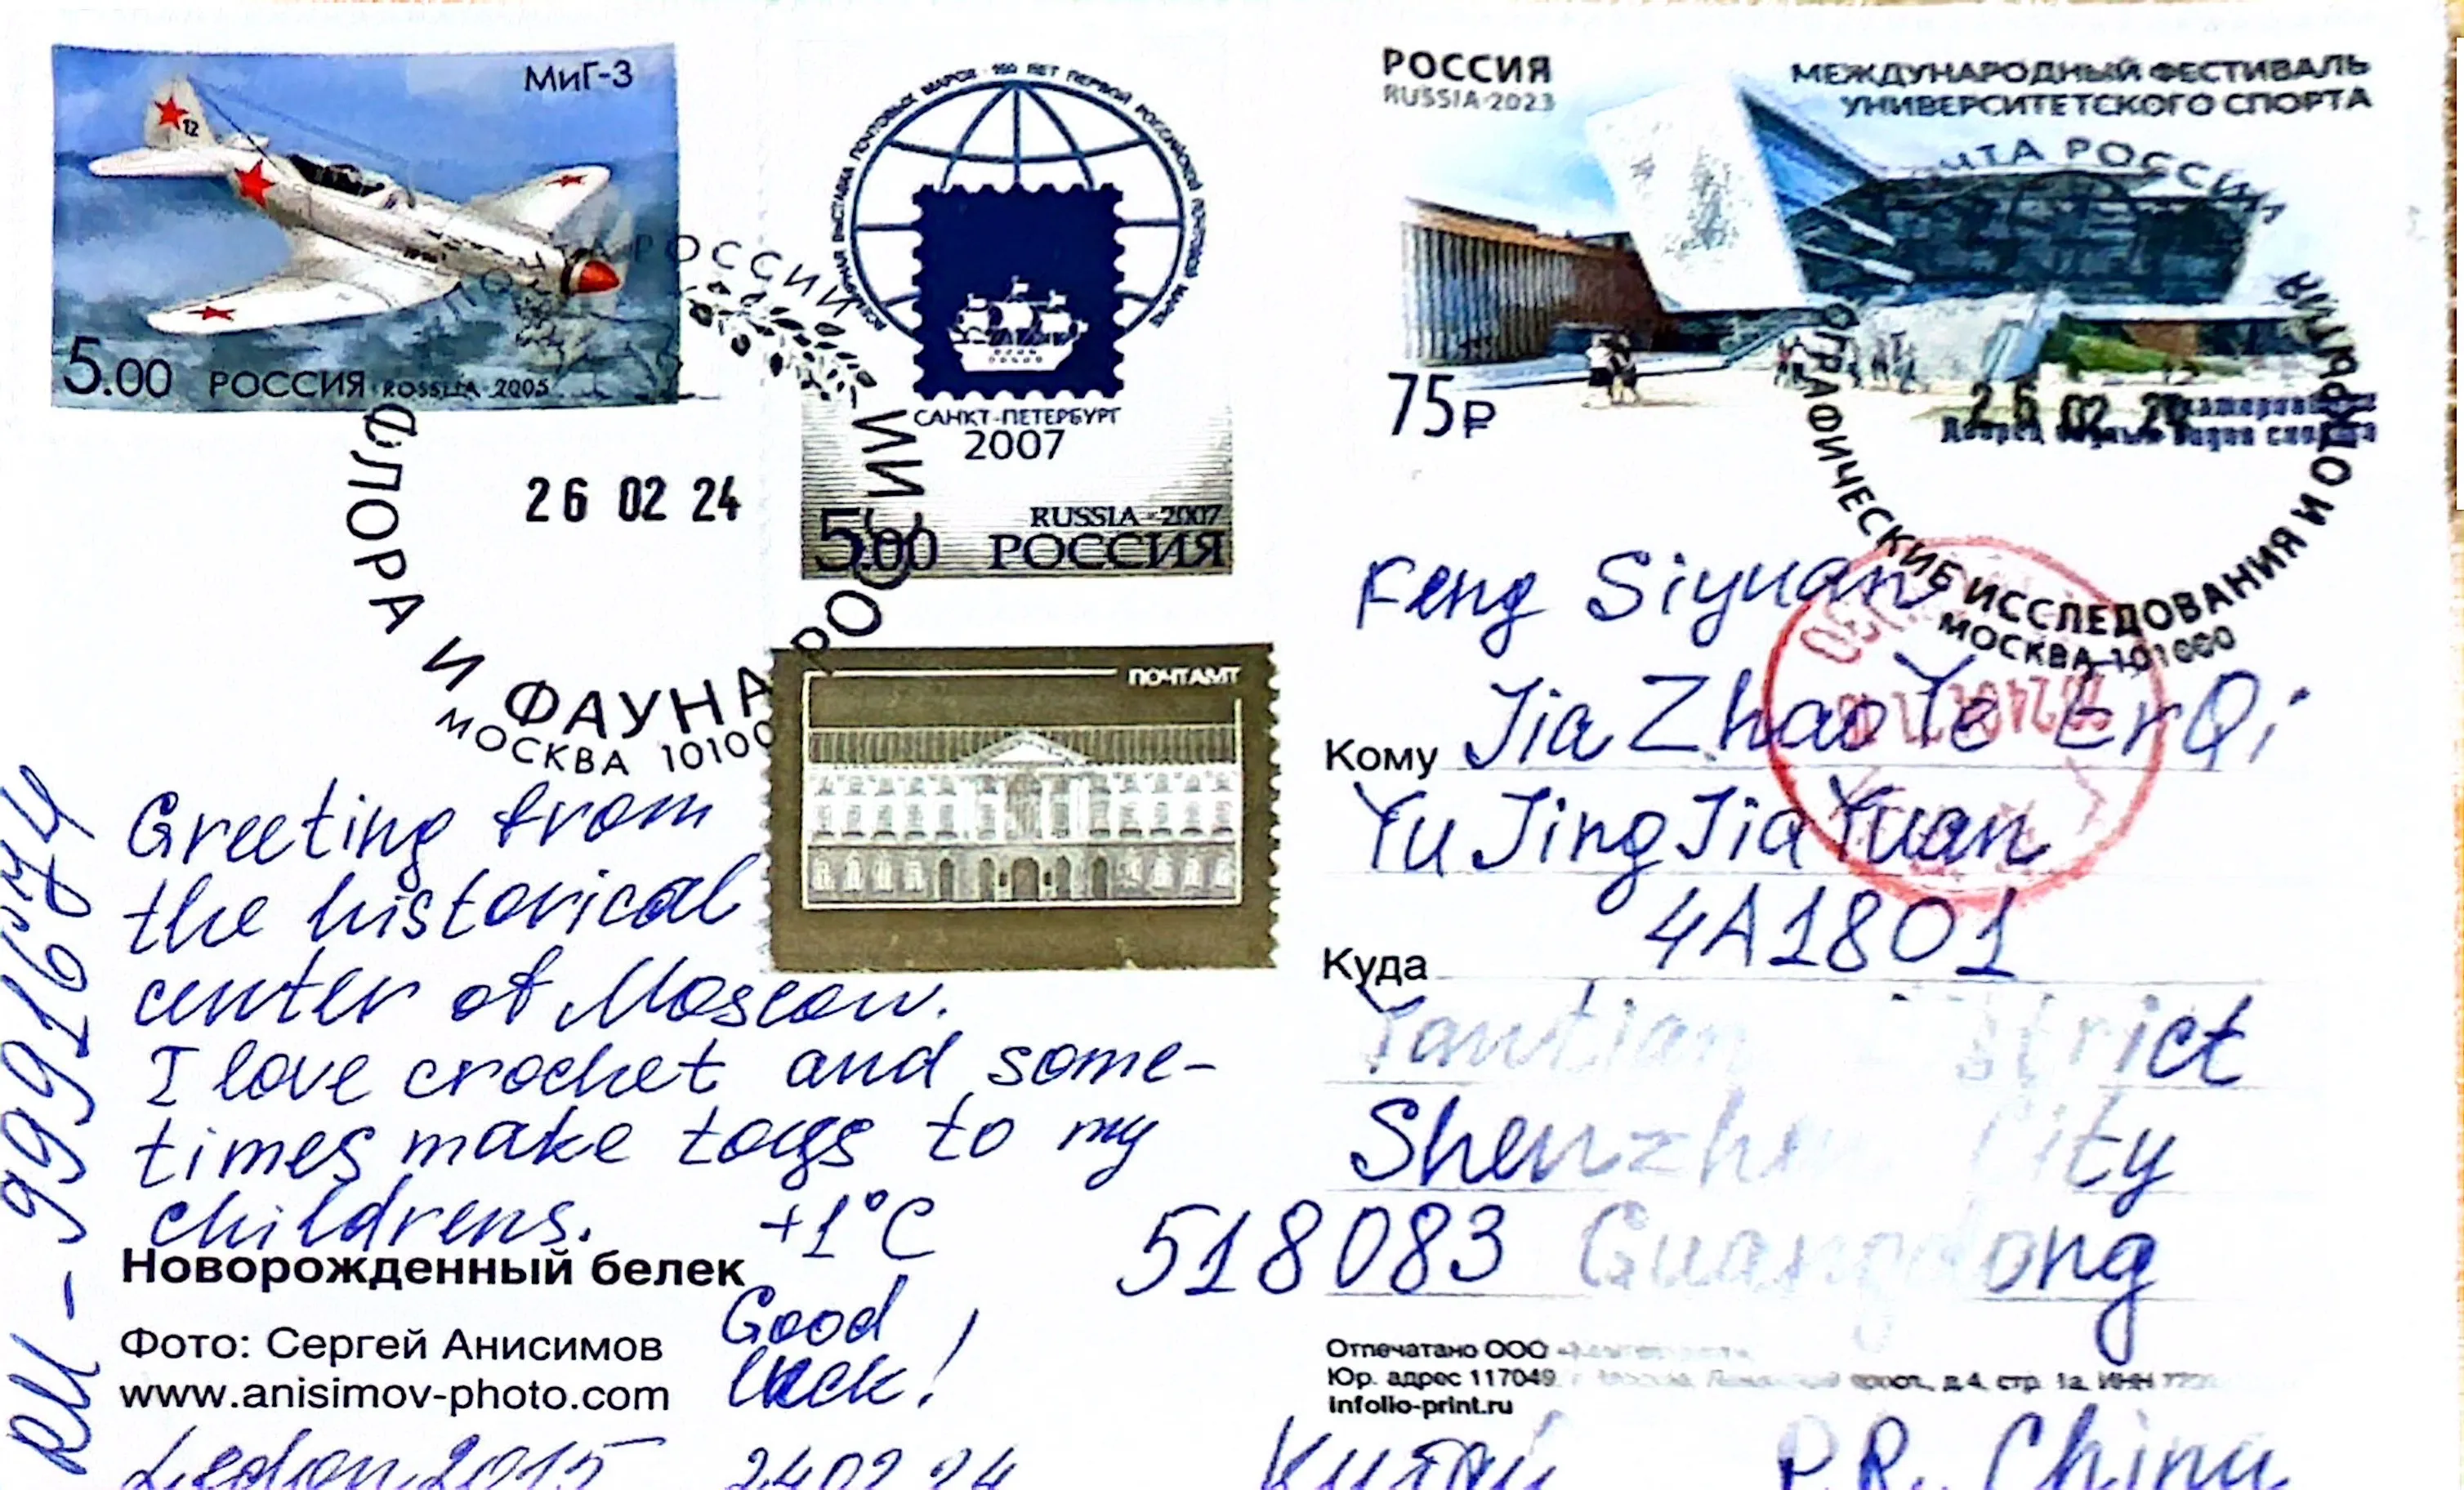 МиГ-3
5.00 РОССИЯ ROSSIJA 2005
САНКТ-ПЕТЕРБУРГ
2007
RUSSIA 2007
5.00 РОССИЯ
РОССИЯ
RUSSIA 2023
МЕЖДУНАРОДНЫЙ ФЕСТИВАЛЬ
УНИВЕРСИТЕТСКОГО СПОРТА
75₽
ПОЧТА РОССИИ
26 02 24
ФЛОРА И ФАУНА РОССИИ
МОСКВА 10100
26 02 24
ИССЛЕДОВАНИЯ И ОТКРЫТИЯ
МОСКВА 101000
ПОЧТАМТ
RU-9991674
Greeting from
the historical
center of Moscow.
I love crochet and some-
times make toys to my
childrens. +1°C
Good
luck!
Новорожденный белек
Фото: Сергей Анисимов
www.anisimov-photo.com
24 02 24
Feng Siyuan
Кому Jia Zhao Ye Er Qi
Yu Jing Jia Yuan
4A1801
Куда
Yantian District
Shenzhen City
518083 Guangdong
Отпечатано ООО
Юр. адрес 117049
д.4, стр. 1а, ИНН
infolio-print.ru
Китай P.R. China